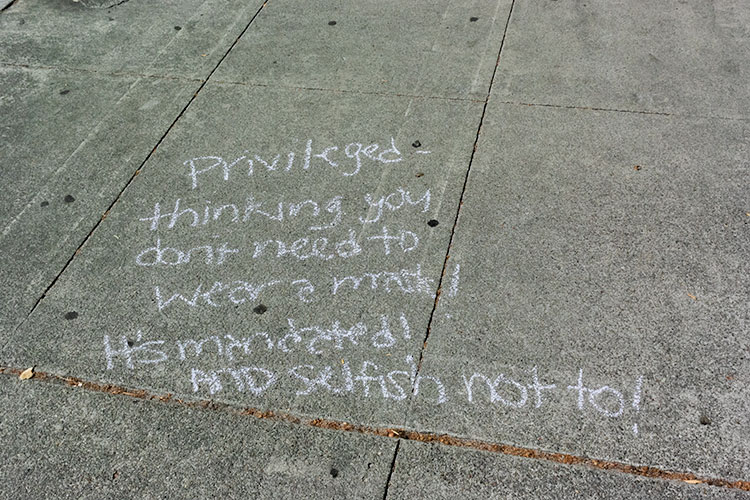 Privileged -
thinking you
dont need to
wear a mask!
It's mandated!
AND selfish not to!